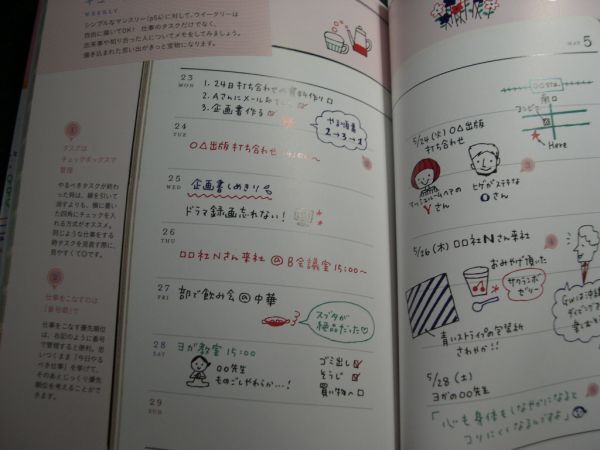 WEEKLY
シンプルなマンスリー(p54)に対して、ウイークリーは
自由に描いてOK! 仕事のタスクだけでなく、
出来事や知り合った人についてメモをしてみましょう。
描き込まれた思い出がきっと宝物になります。
1
タスクは
チェックボックスで
管理
やるべきタスクが終わ
った時は、線を引いて
消すよりも、横に書い
た四角にチェックを入
れる方式がオススメ。
同じような仕事をする
時タスクを見直す際に、
見やすくてOKです。
2
仕事をこなすのは
「番号順」で
仕事をこなす優先順位
は、右記のように番号
で管理すると便利。思
いつくまま「今日やる
べき仕事」を挙げて、
そのあとじっくり優先
順位を考えることがで
きます。
23
MON
1. 24日打ち合わせの資料作り
2. Aさんにメール
3. 企画書作る
やる順番
2→3→1
24
TUE
○△出版打ち合わせ
25
WED
企画書しめきり
ドラマ録画忘れない!
26
THU
□□社Nさん来社 @B会議室 15:00〜
27
FRI
部で飲み会@中華
スブタが
絶品だった♡
28
SAT
ヨガ教室 15:00
○○先生
ものごしやわらか…!
ゴミ出し
そうじ
買い物へ
29
SUN
MAY 5
南口
コンビニ
Here
5/24 (火) ○△出版
打ち合わせ
マッシュルームヘアの
Yさん
ヒゲがステキな
Oさん
5/26 (木) □□社Nさん来社
おみやげ頂いた
サクランボ
ゼリー
GWは沖縄
青いストライプの
さわやか!!
5/28 (土)
ヨガの○○先生
「心も身体もしなやかになると
コリにくくなるんですよ」